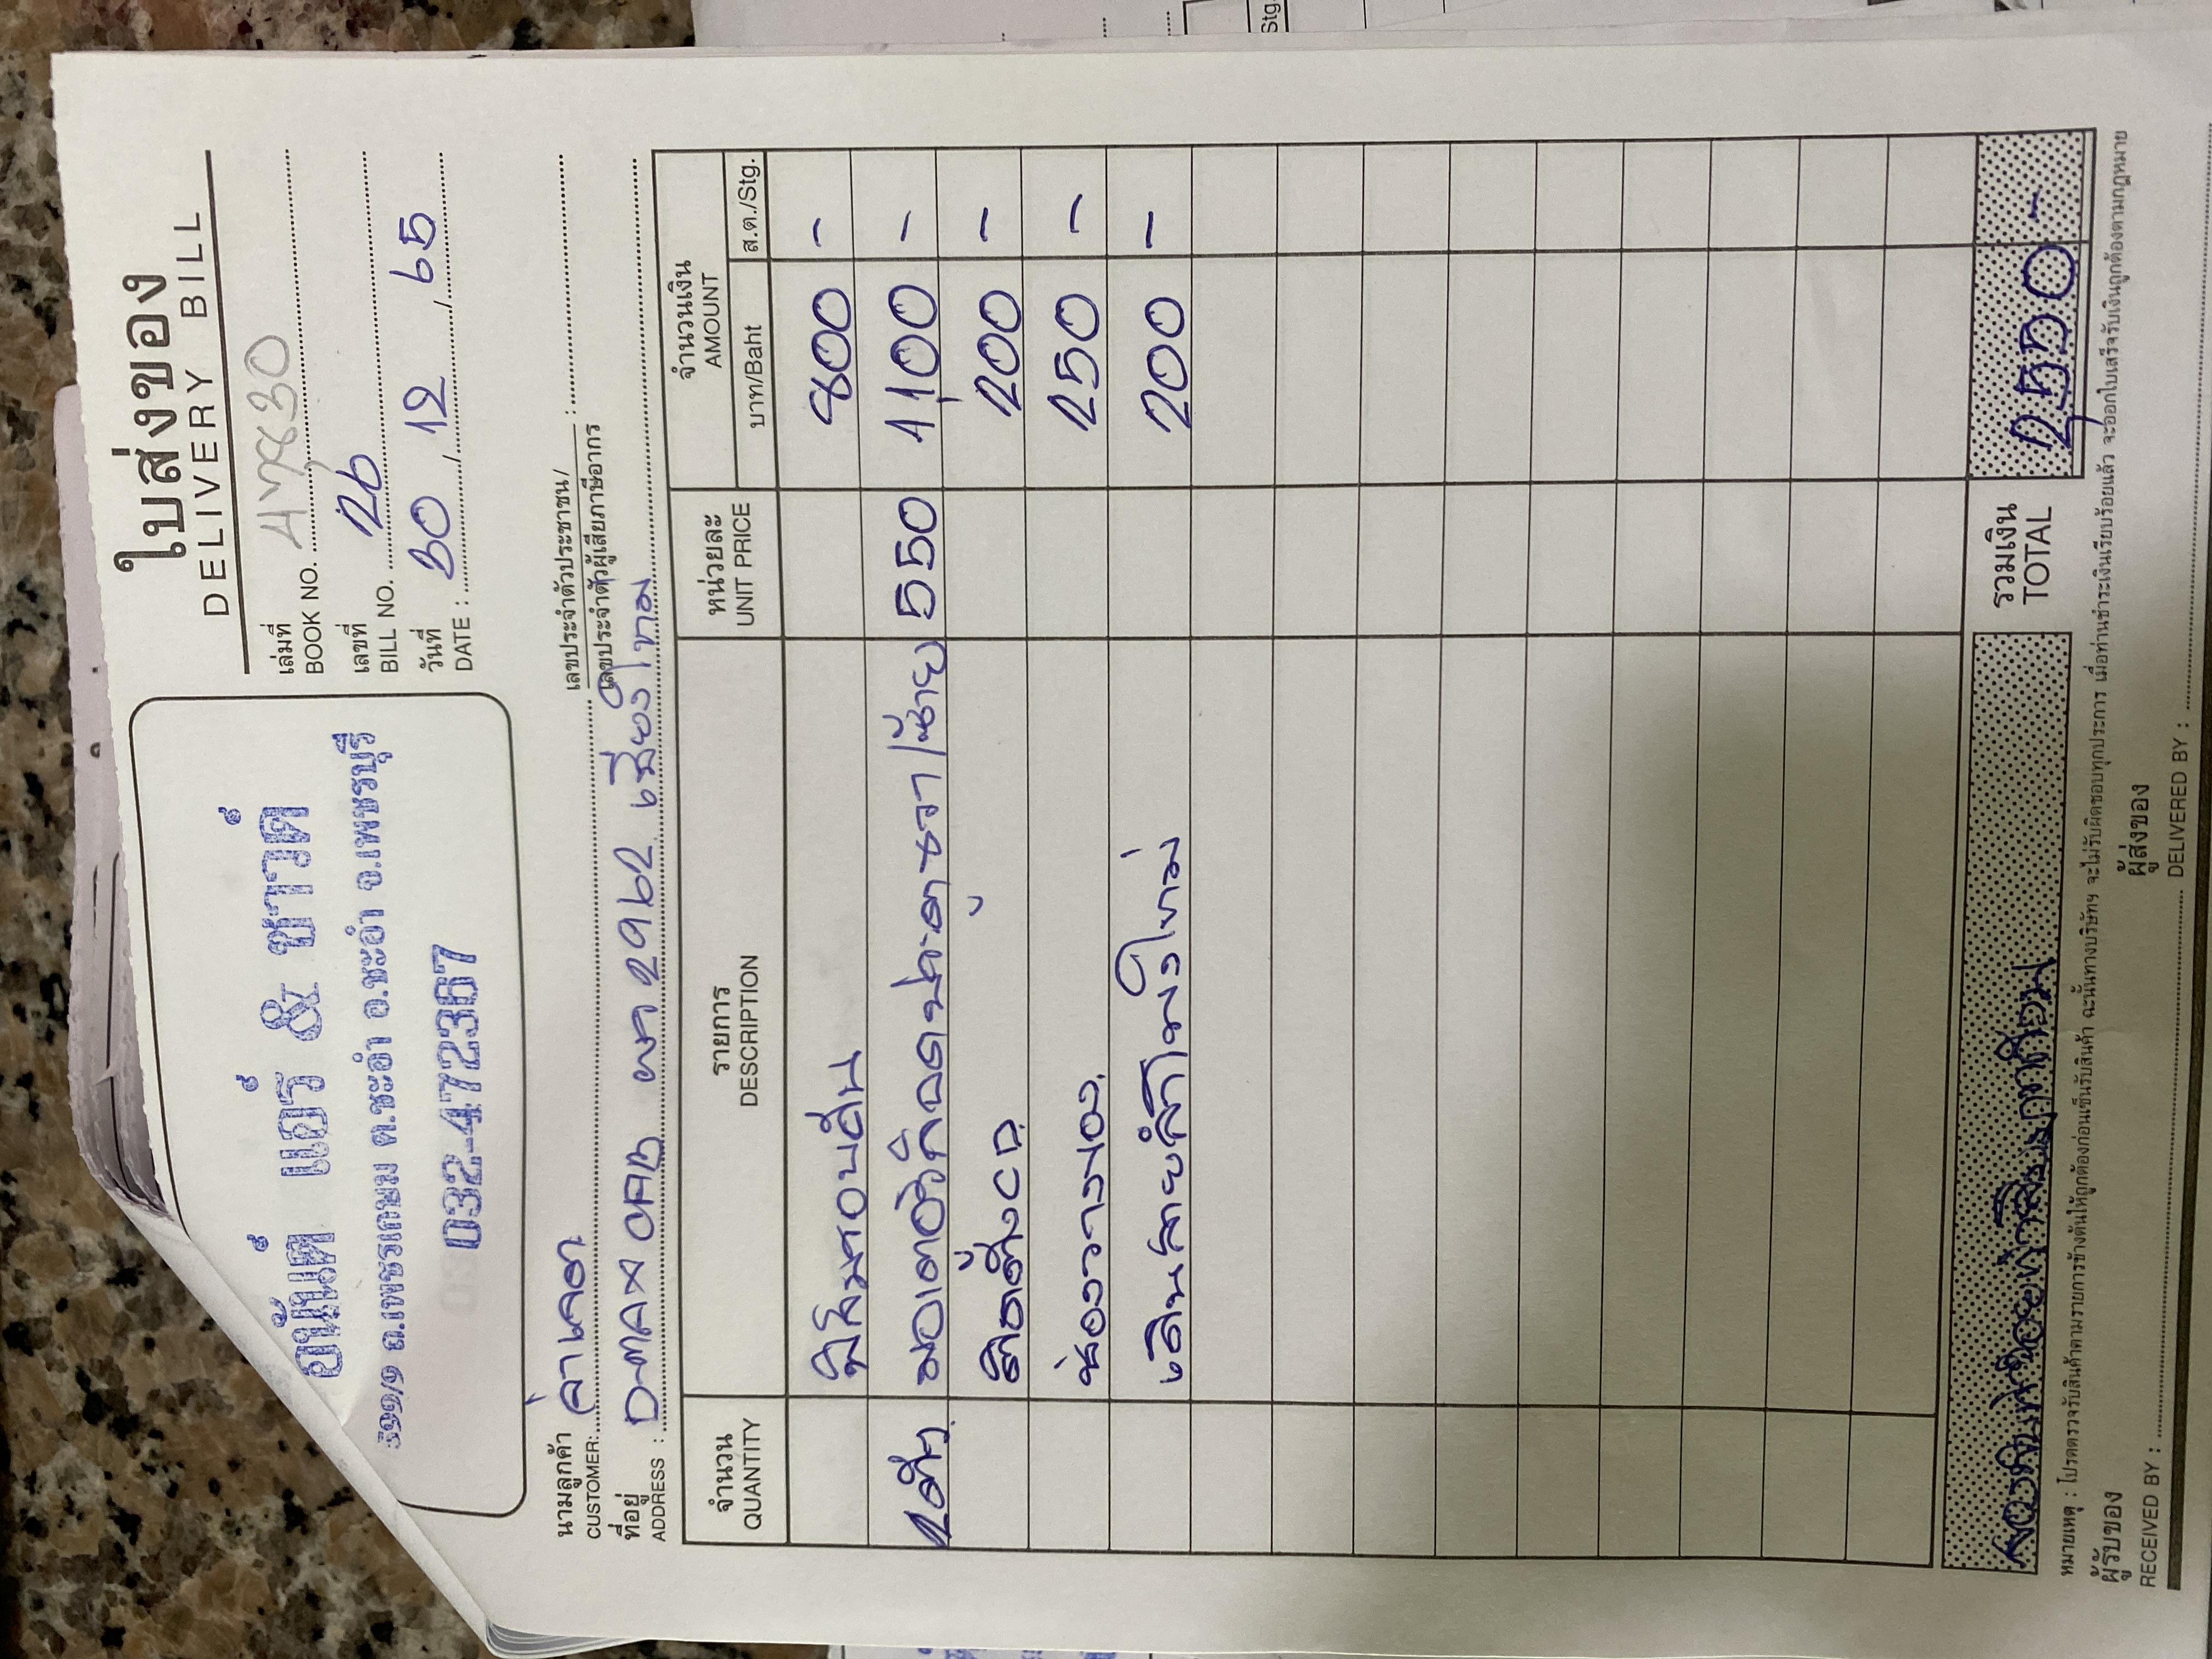 อนันต์ แอร์ & ซาวด์
ถ.เพชรเกษม ต.ชะอำ อ.ชะอำ จ.เพชรบุรี
032-472367
ใบส่งของ
DELIVERY BILL
เล่มที่
BOOK NO. 47830
เลขที่
BILL NO. 26
วันที่
DATE : 30 / 12 / 65
นามลูกค้า
CUSTOMER:
เลขประจำตัวประชาชน/
เลขประจำตัวผู้เสียภาษีอากร :
ที่อยู่
ADDRESS : D-MAX CAB 2962
จำนวน QUANTITY รายการ DESCRIPTION หน่วยละ UNIT PRICE จำนวนเงิน AMOUNT
บาท/Baht ส.ต./Stg.
800 -
2 ตัว 550 1,100 -
ติดตั้ง CD 200 -
ช่องวางของ 250 -
เดินสายลำโพงใหม่ 200 -
รวมเงิน
TOTAL 2,550 -
หมายเหตุ : โปรดตรวจรับสินค้าตามรายการข้างต้นให้ถูกต้องก่อนเซ็นรับสินค้า ฉะนั้นทางบริษัทฯ จะไม่รับผิดชอบทุกประการ เมื่อท่านชำระเงินเรียบร้อยแล้ว จะออกใบเสร็จรับเงินถูกต้องตามกฎหมาย
ผู้รับของ
RECEIVED BY :
ผู้ส่งของ
DELIVERED BY :
Stg.